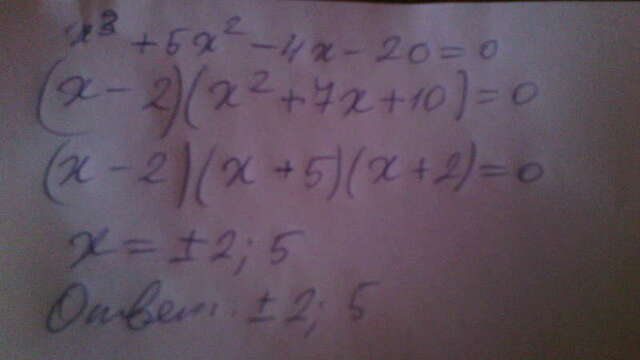 x³ + 5x² - 4x - 20 = 0
(x - 2)(x² + 7x + 10) = 0
(x - 2)(x + 5)(x + 2) = 0
x = ±2; 5
Ответ: ±2; 5